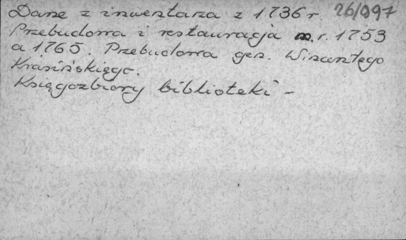 Dane z inwentarza z 1736 r. 26/997
Przebudowa i restauracja m. r. 1753
a 1765. Przebudowa gen. Wincentego
Krasińskiego.
Księgozbiory biblioteki -